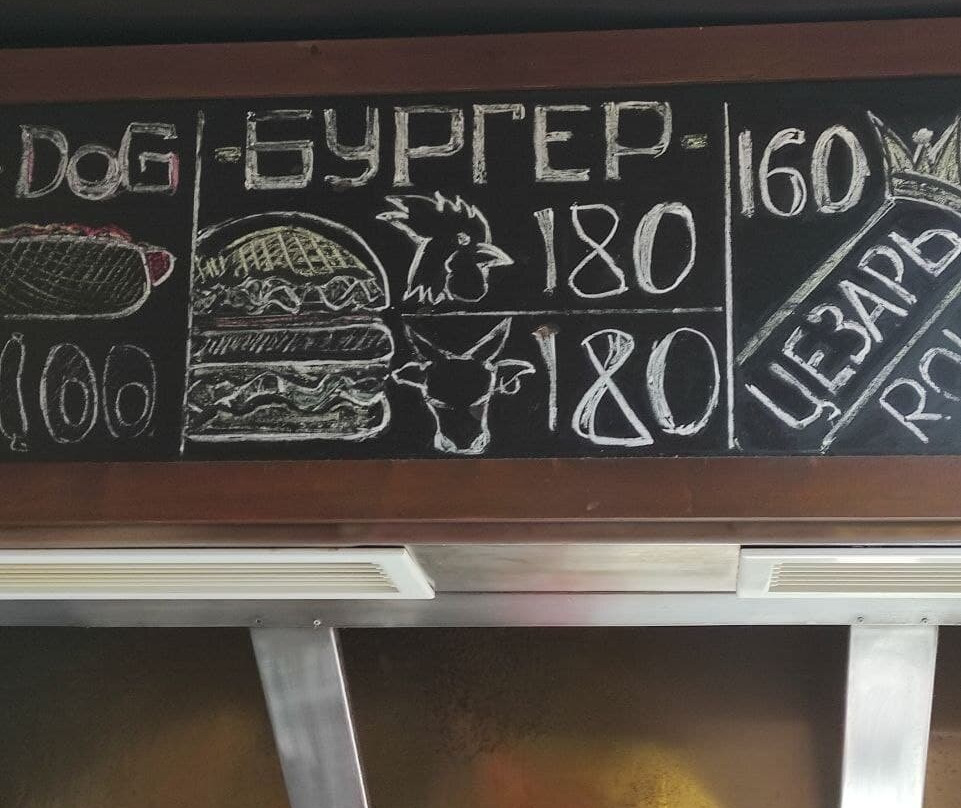 DOG
100
- БУРГЕР -
180
180
160
ЦЕЗАРЬ